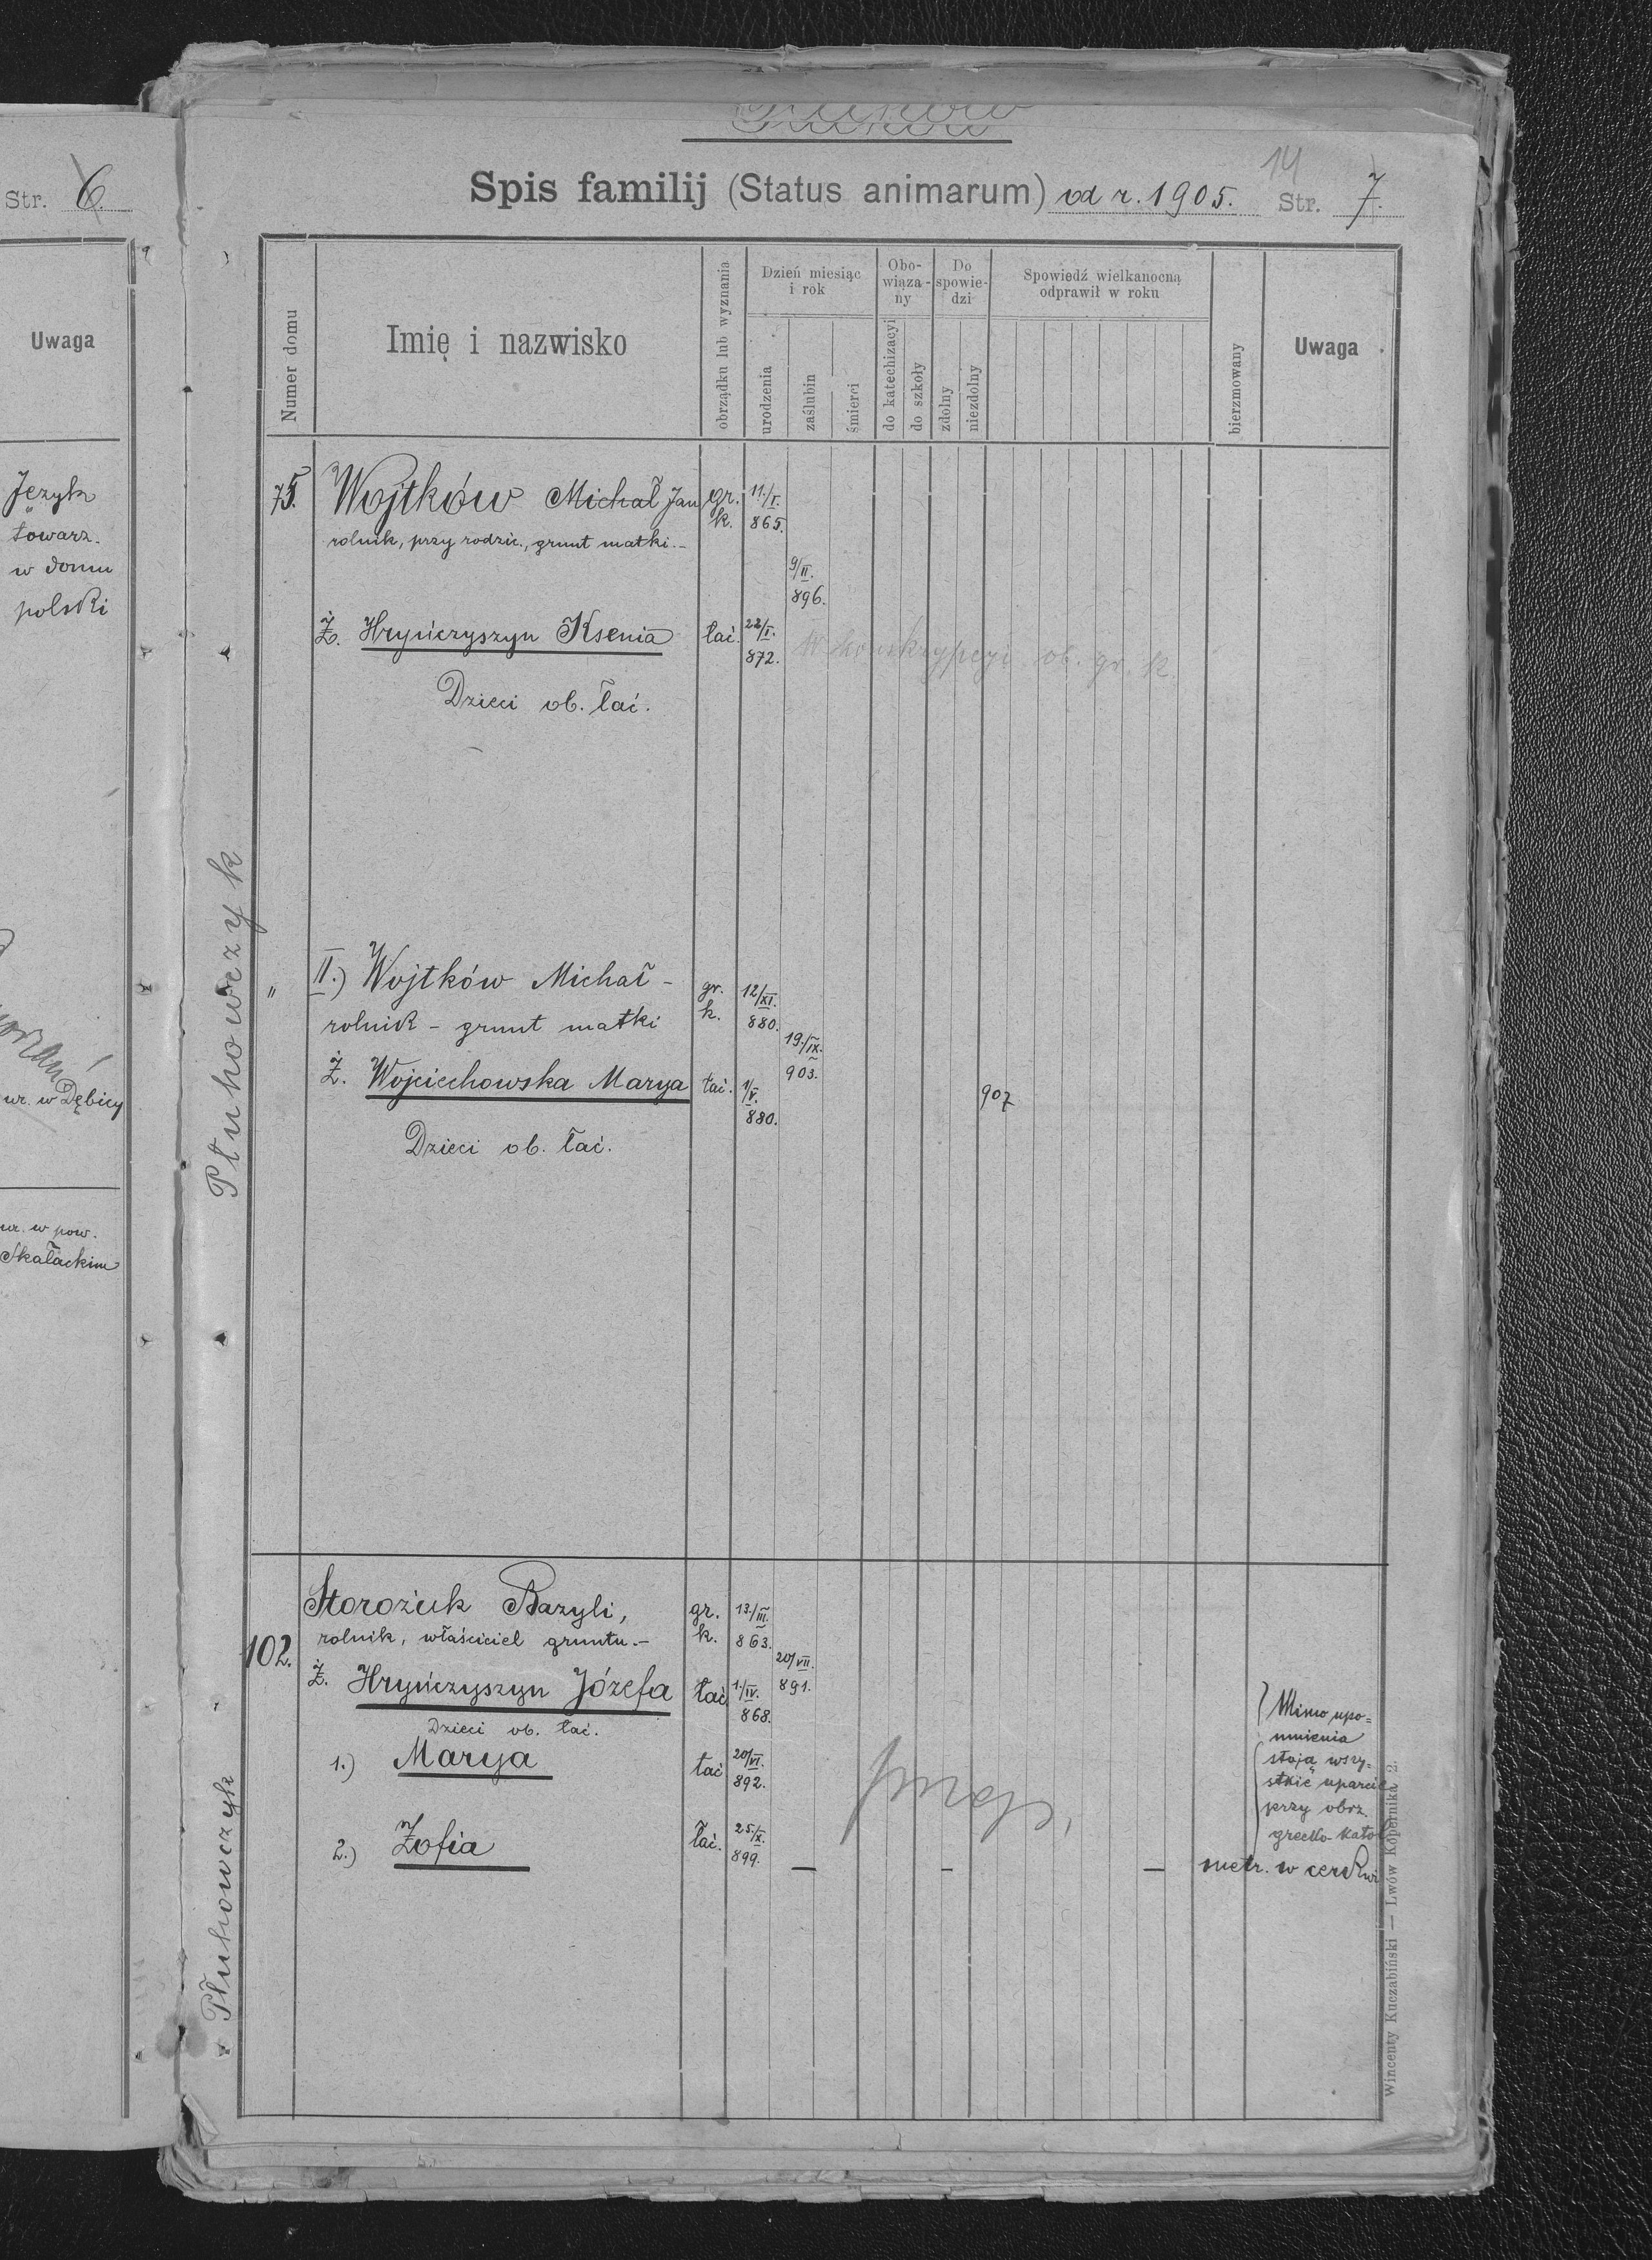 Str. 6.
Uwaga
Język
towarz.
w domu
polski
ur. w Dębicy
ur. w pow.
Skałackim
Spis familij (Status animarum) od r. 1905.
14
Str. 7.
Numer domu
Imię i nazwisko
obrządku lub wyznania
Dzień miesiąc
i rok
urodzenia
zaślubin
śmierci
Obo-
wiąza-
ny
do katechizacyi
do szkoły
Do
spowie-
dzi
zdolny
niezdolny
Spowiedź wielkanocną
odprawił w roku
bierzmowany
Uwaga
Płuhowczyk
75. Wojtków Michał Jan gr. k. 11./I. 865.
rolnik, przy rodzic., grunt matki.-
9/II. 896.
Ż. Hryńczyszyn Ksenia łać. 22/I. 872. w konskrypcyi ob. gr. k.
Dzieci ob. łać.
" II.) Wojtków Michał - gr. k. 12/XI. 880.
rolnik - grunt matki
19./IX. 903.
Ż. Wojciechowska Marya łać. 1/V. 880. 907
Dzieci ob. łać.
Płuhowczyk
102. Storożuk Bazyli, gr. k. 13./III. 863.
rolnik, właściciel gruntu.-
20/VII. 891.
Ż. Hryńczyszyn Józefa łać 1./IV. 868.
Dzieci ob. łać.
1.) Marya łać 20/VI. 892.
2.) Zofia łać. 25./X. 899. — — —
Mimo upo=
mnienia
stoją wszy=
stkie uparcie
przy obrz.
grecko-katol
metr. w cerkwi
Wincenty Kuczabiński — Lwów Kopernika 2.